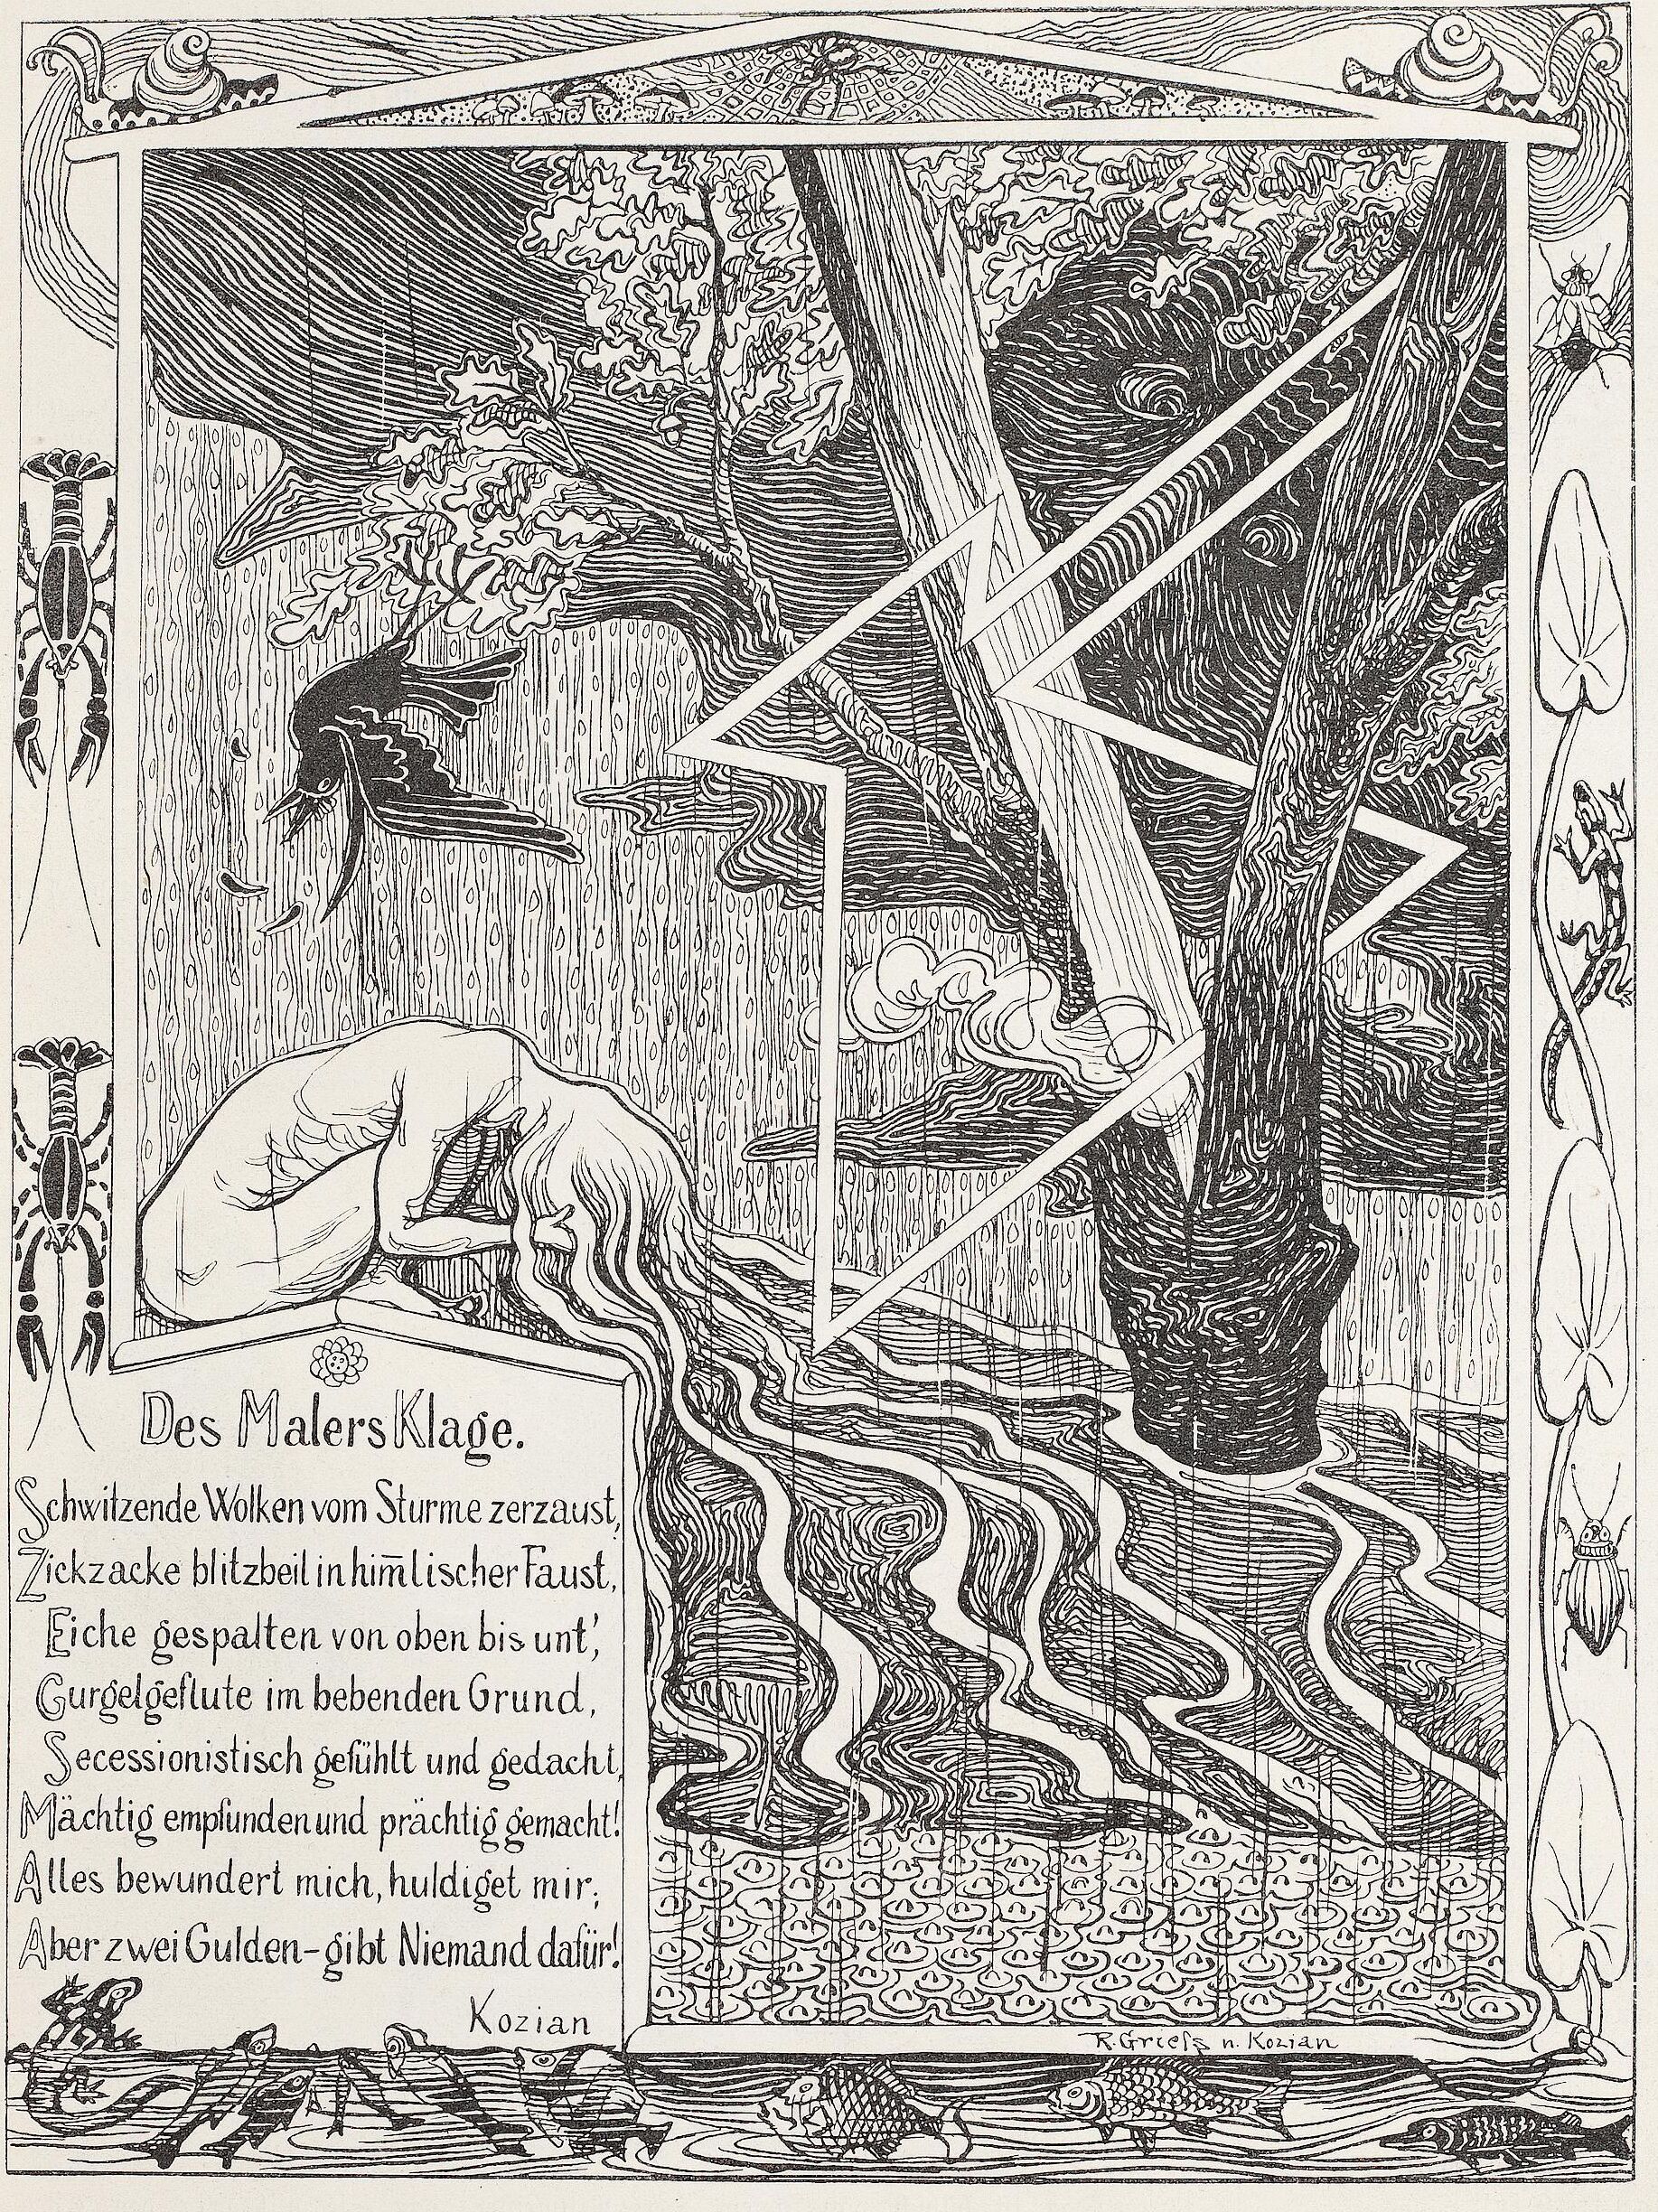 Des Malers Klage.
Schwitzende Wolken vom Sturme zerzaust,
Zickzacke blitzbeil in him̄lischer Faust,
Eiche gespalten von oben bis unt',
Gurgelgeflute im bebenden Grund,
Secessionistisch gefühlt und gedacht,
Mächtig empfunden und prächtig gemacht!
Alles bewundert mich, huldiget mir;
Aber zwei Gulden – gibt Niemand dafür!
Kozian
R. Griefs n. Kozian